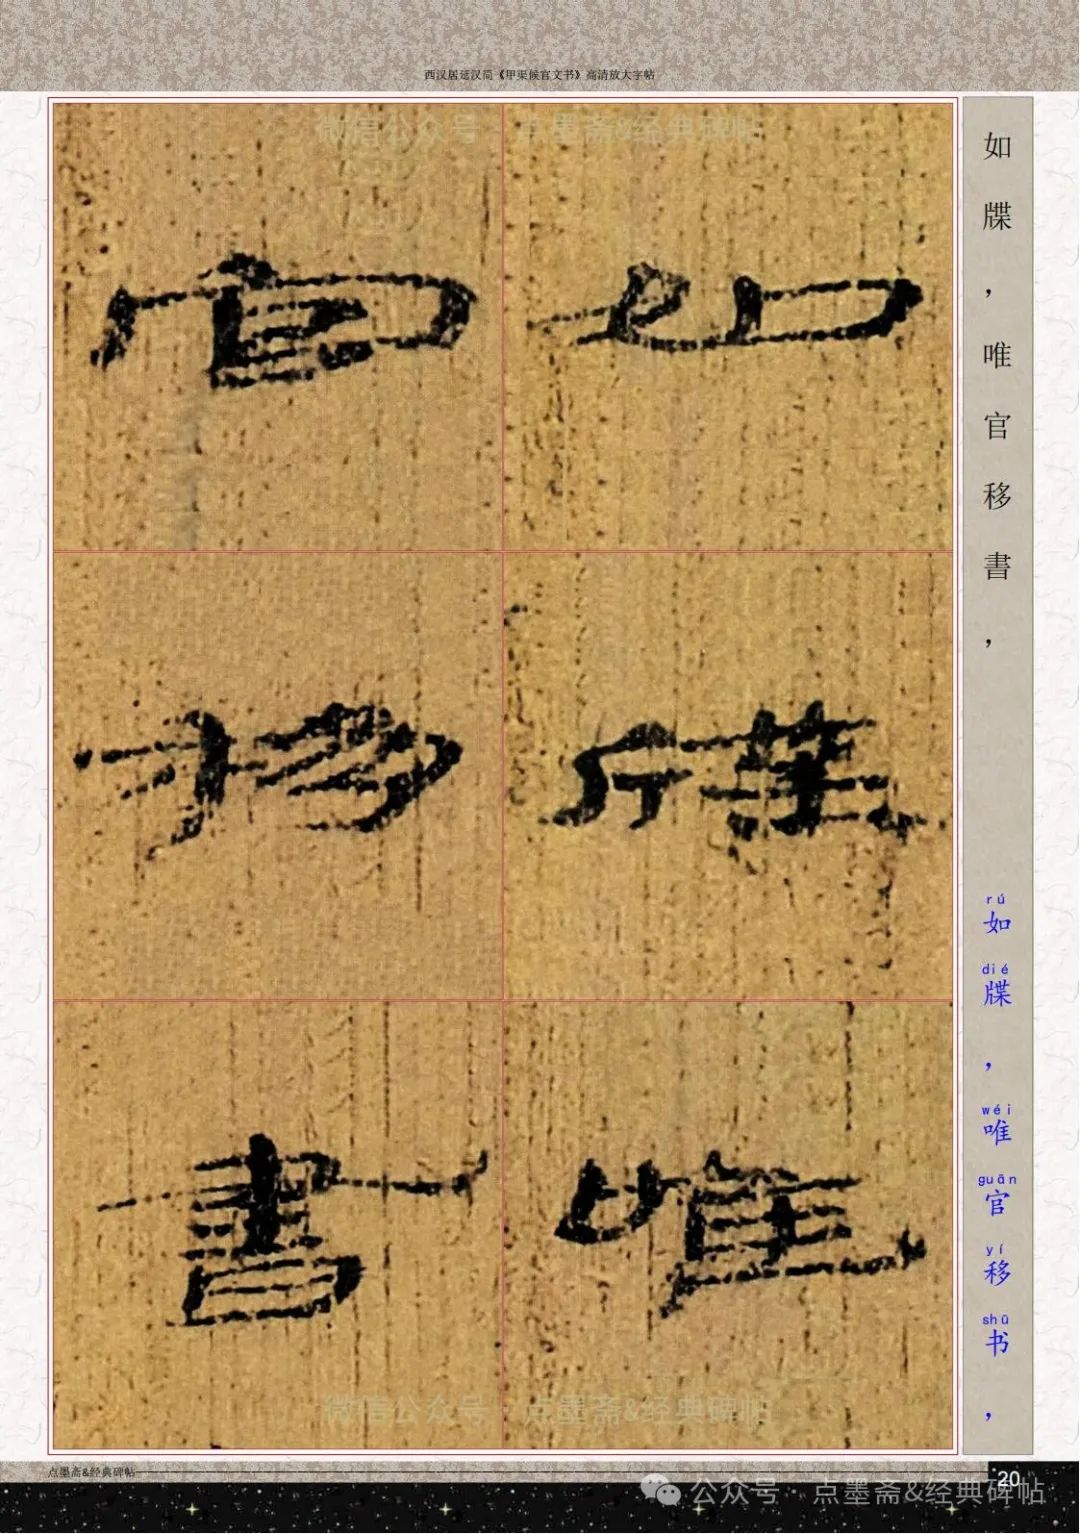 西汉居延汉简《甲渠候官文书》高清放大字帖
微信公众号·点墨斋&经典碑帖
如
牒
唯
官
移
書
如牒，唯官移書，
rú dié wéi guān yí shū
如牒，唯官移书，
微信公众号·点墨斋&经典碑帖
点墨斋&经典碑帖
20
公众号·点墨斋&经典碑帖